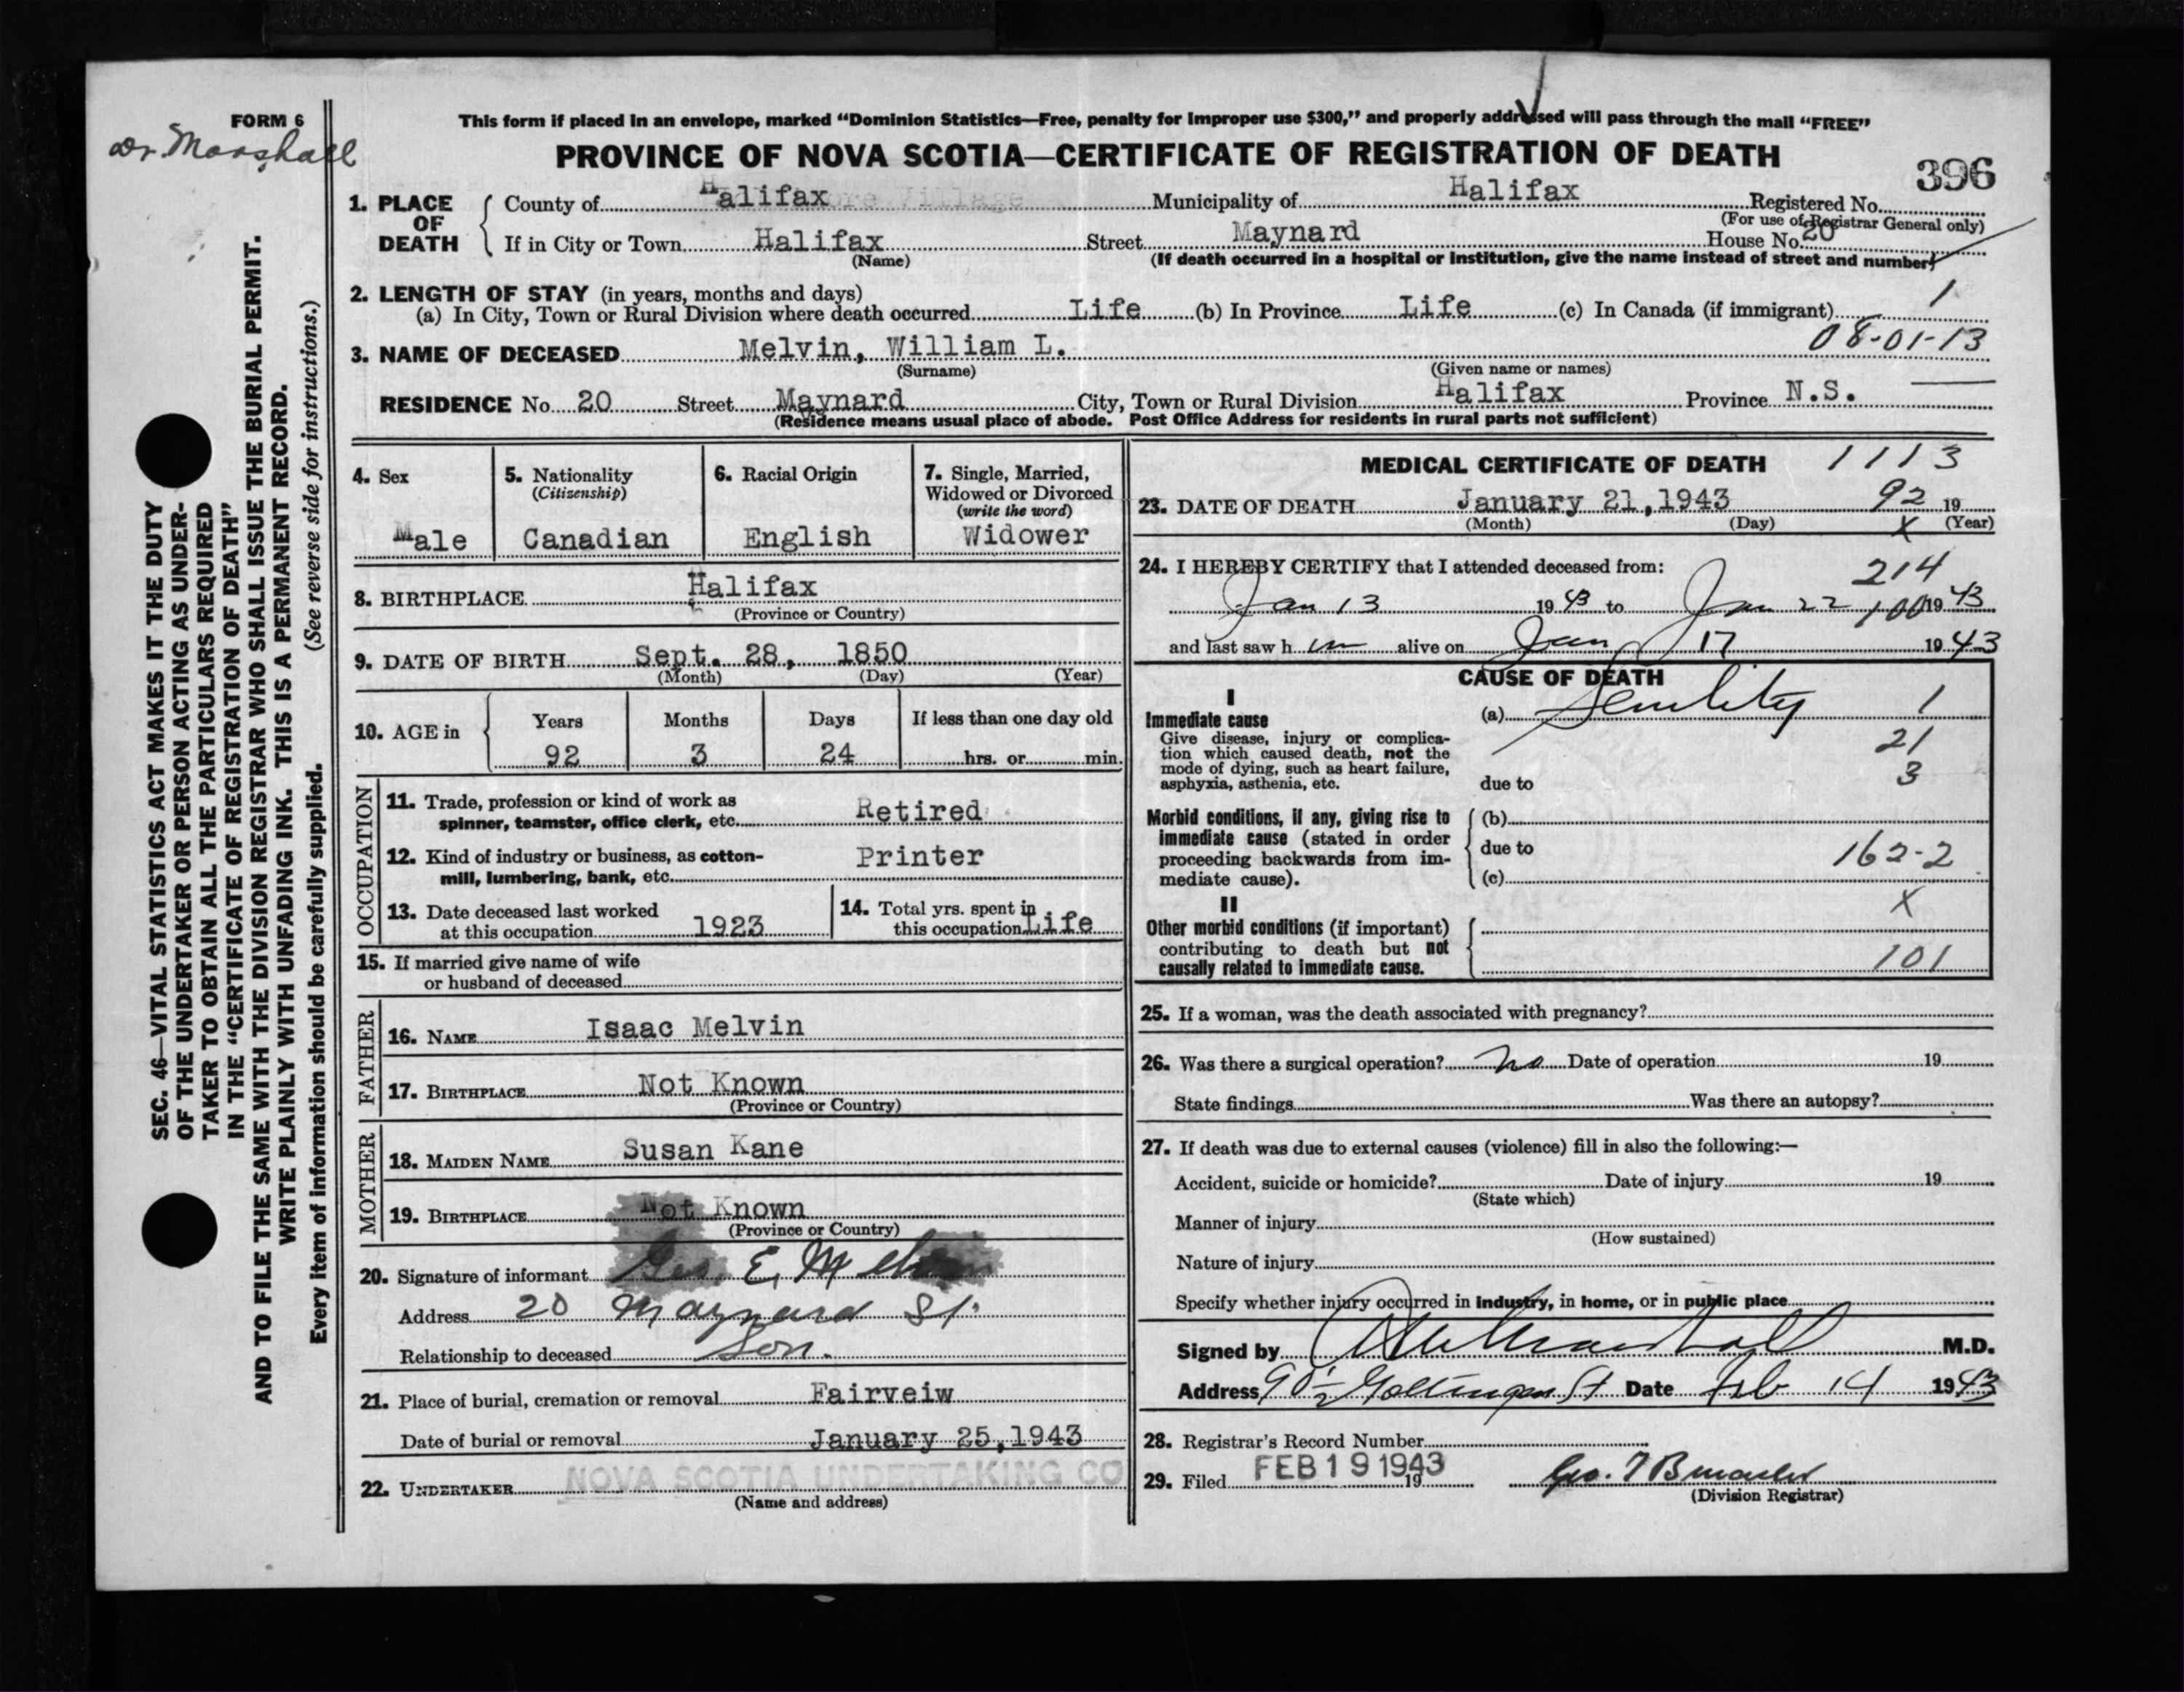 FORM 6
Dr. Marshall
This form if placed in an envelope, marked “Dominion Statistics—Free, penalty for improper use $300,” and properly addressed will pass through the mail “FREE”
PROVINCE OF NOVA SCOTIA—CERTIFICATE OF REGISTRATION OF DEATH
396
1. PLACE OF DEATH
County of Halifax Municipality of Halifax Registered No.
(For use of Registrar General only)
If in City or Town Halifax Street Maynard House No. 20
(Name) (If death occurred in a hospital or institution, give the name instead of street and number)
2. LENGTH OF STAY (in years, months and days)
(a) In City, Town or Rural Division where death occurred Life (b) In Province Life (c) In Canada (if immigrant) 1
3. NAME OF DECEASED Melvin, William L. 08-01-13
(Surname) (Given name or names)
RESIDENCE No. 20 Street Maynard City, Town or Rural Division Halifax Province N.S.
(Residence means usual place of abode. Post Office Address for residents in rural parts not sufficient)
4. Sex Male
5. Nationality (Citizenship) Canadian
6. Racial Origin English
7. Single, Married, Widowed or Divorced (write the word) Widower
8. BIRTHPLACE Halifax
(Province or Country)
9. DATE OF BIRTH Sept. 28, 1850
(Month) (Day) (Year)
10. AGE in Years Months Days If less than one day old
92 3 24 hrs. or min.
OCCUPATION
11. Trade, profession or kind of work as
spinner, teamster, office clerk, etc. Retired
12. Kind of industry or business, as cotton-
mill, lumbering, bank, etc. Printer
13. Date deceased last worked
at this occupation 1923
14. Total yrs. spent in
this occupation Life
15. If married give name of wife
or husband of deceased
FATHER
16. NAME Isaac Melvin
17. BIRTHPLACE Not Known
(Province or Country)
MOTHER
18. MAIDEN NAME Susan Kane
19. BIRTHPLACE Not Known
(Province or Country)
20. Signature of informant Geo. E. Melvin
Address 20 Maynard St.
Relationship to deceased Son.
21. Place of burial, cremation or removal Fairveiw
Date of burial or removal January 25, 1943
22. UNDERTAKER NOVA SCOTIA UNDERTAKING CO
(Name and address)
MEDICAL CERTIFICATE OF DEATH 1113
23. DATE OF DEATH January 21, 1943 92 19
(Month) (Day) X (Year)
24. I HEREBY CERTIFY that I attended deceased from:
214
Jan 13 1943 to Jan 22 100 1943
and last saw h im alive on Jan 17 1943
CAUSE OF DEATH
I
Immediate cause (a) Senility 1
Give disease, injury or complica-
tion which caused death, not the
mode of dying, such as heart failure,
asphyxia, asthenia, etc. due to
21
3
Morbid conditions, if any, giving rise to
immediate cause (stated in order
proceeding backwards from im-
mediate cause).
(b)
due to
162-2
(c)
X
II
Other morbid conditions (if important)
contributing to death but not
causally related to immediate cause.
101
25. If a woman, was the death associated with pregnancy?
26. Was there a surgical operation? no Date of operation 19
State findings Was there an autopsy?
27. If death was due to external causes (violence) fill in also the following:—
Accident, suicide or homicide? Date of injury 19
(State which)
Manner of injury
(How sustained)
Nature of injury
Specify whether injury occurred in industry, in home, or in public place
Signed by Marshall M.D.
Address 90½ Gottingen St Date Feb 14 1943
28. Registrar's Record Number
29. Filed FEB 19 1943 19 Geo.
(Division Registrar)
SEC. 46—VITAL STATISTICS ACT MAKES IT THE DUTY
OF THE UNDERTAKER OR PERSON ACTING AS UNDER-
TAKER TO OBTAIN ALL THE PARTICULARS REQUIRED
IN THE “CERTIFICATE OF REGISTRATION OF DEATH”
AND TO FILE THE SAME WITH THE DIVISION REGISTRAR WHO SHALL ISSUE THE BURIAL PERMIT.
WRITE PLAINLY WITH UNFADING INK. THIS IS A PERMANENT RECORD.
Every item of information should be carefully supplied. (See reverse side for instructions.)